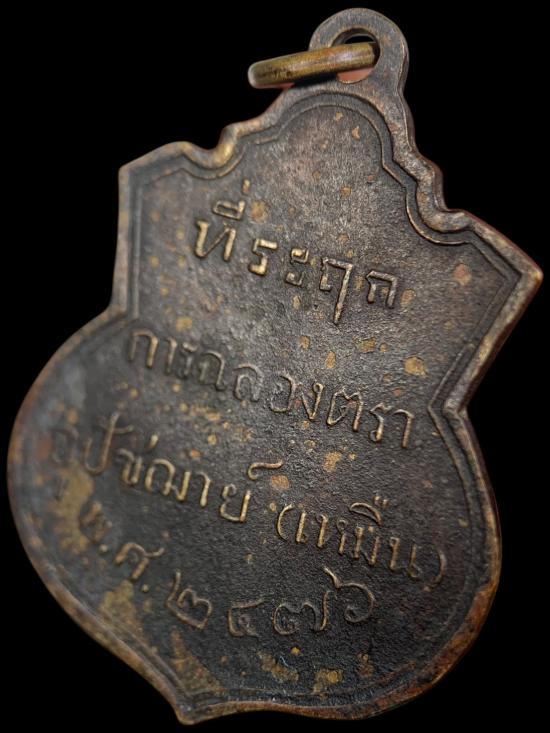 ที่ระฤก
การฉลองตรา
อุปัชฌาย์ (เหมื่น)
พ.ศ. ๒๔๗๖